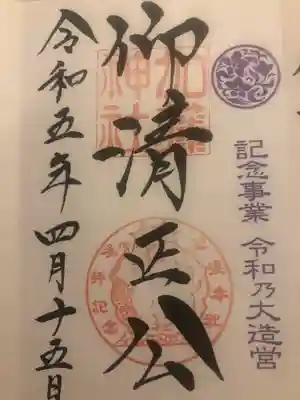 記念事業 令和乃大造営
仰清正公
加藤神社
令和五年四月十五日